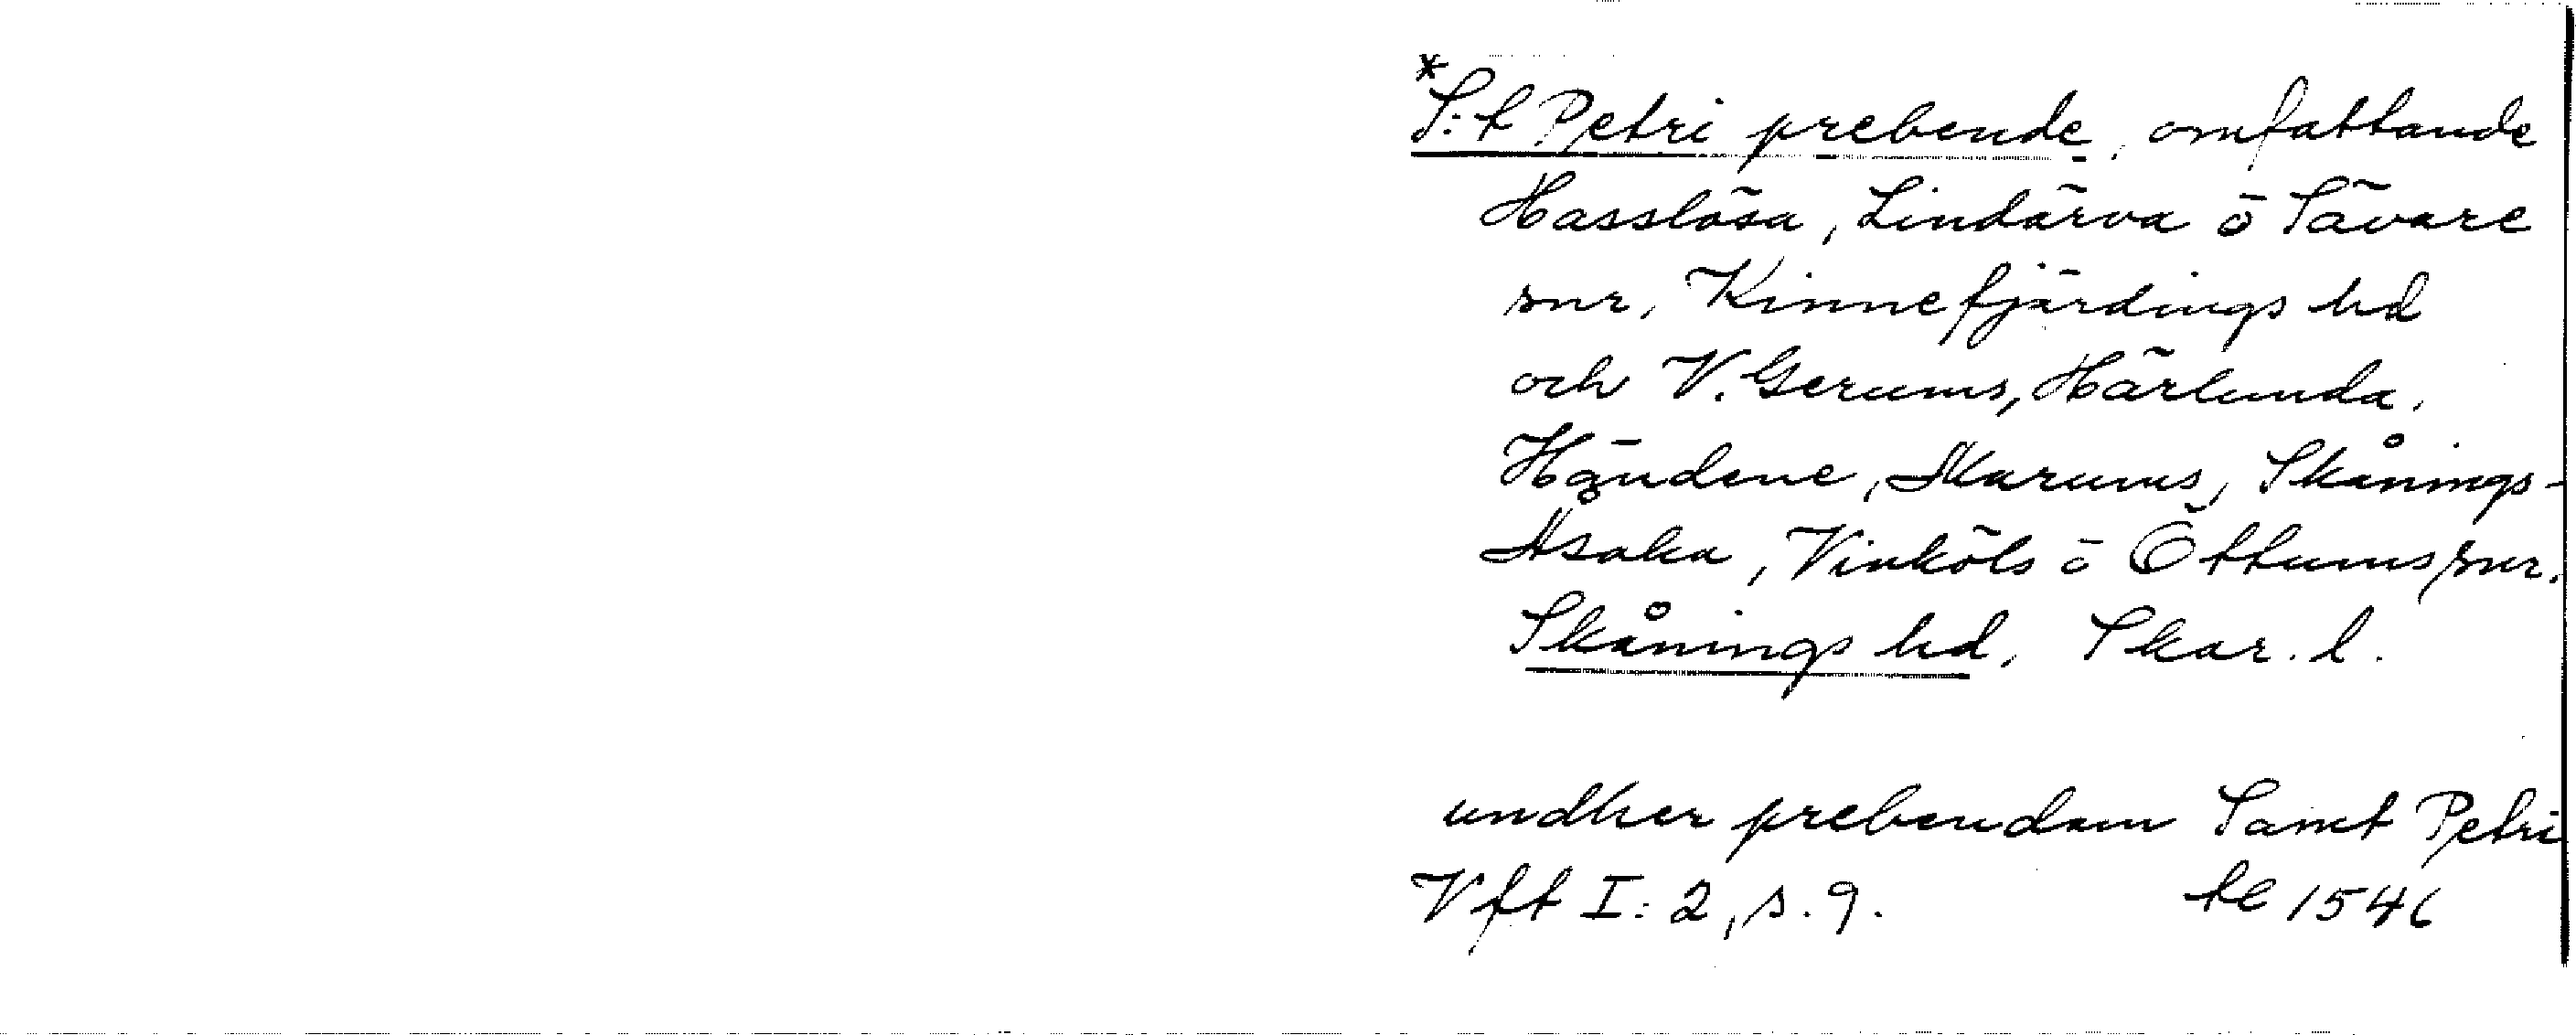 *S:t Petri prebende, omfattande
Hasslösa, Lindärva ō Sävare
snr, Kinnefjärdings hd
och V. Gerums, Härlunda,
Händene, Skarums, Skånings-
Åsaka, Vinköls ō Öttums snr.
Skånings hd, Skar. l.
undher prebendam Sanct Petri
Vft I: 2, s. 9. te 1546